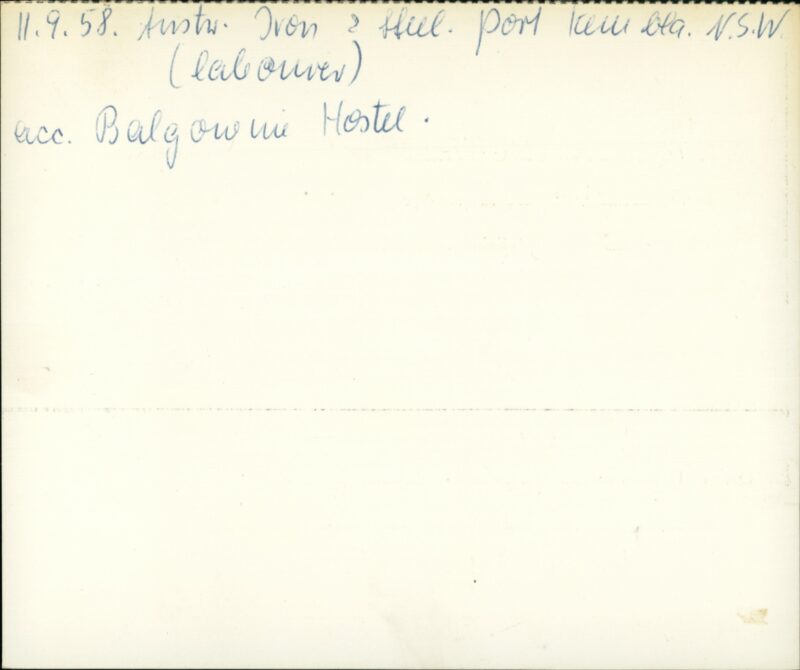 11.9.58. Austr. Iron & Steel. Port Kembla. N.S.W.
(labourer)
acc. Balgownie Hostel.